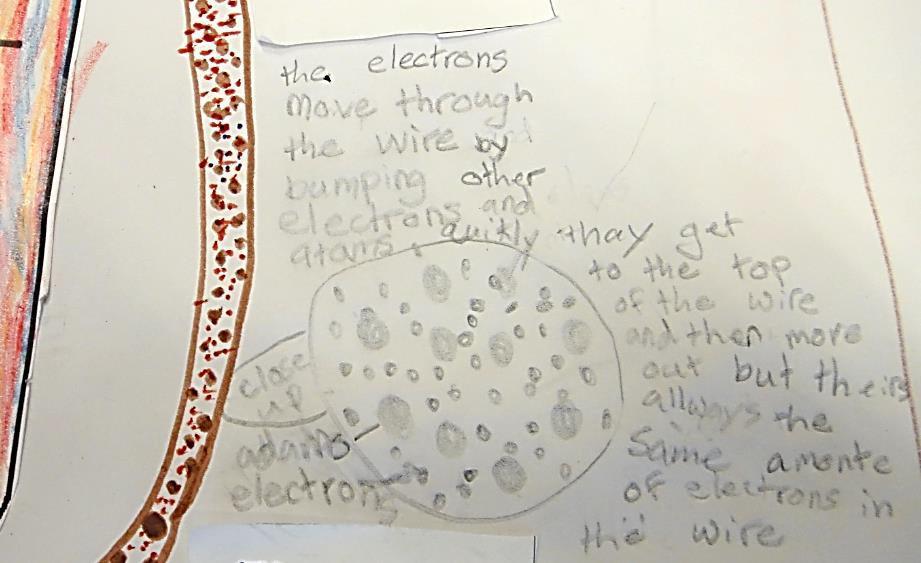 the electrons
move through
the wire by
bumping other
electrons and
atams. quitly thay get
to the top
of the wire
and then more
out but theirs
allways the
same amonte
of electrons in
the wire
close
up
adams
electrons